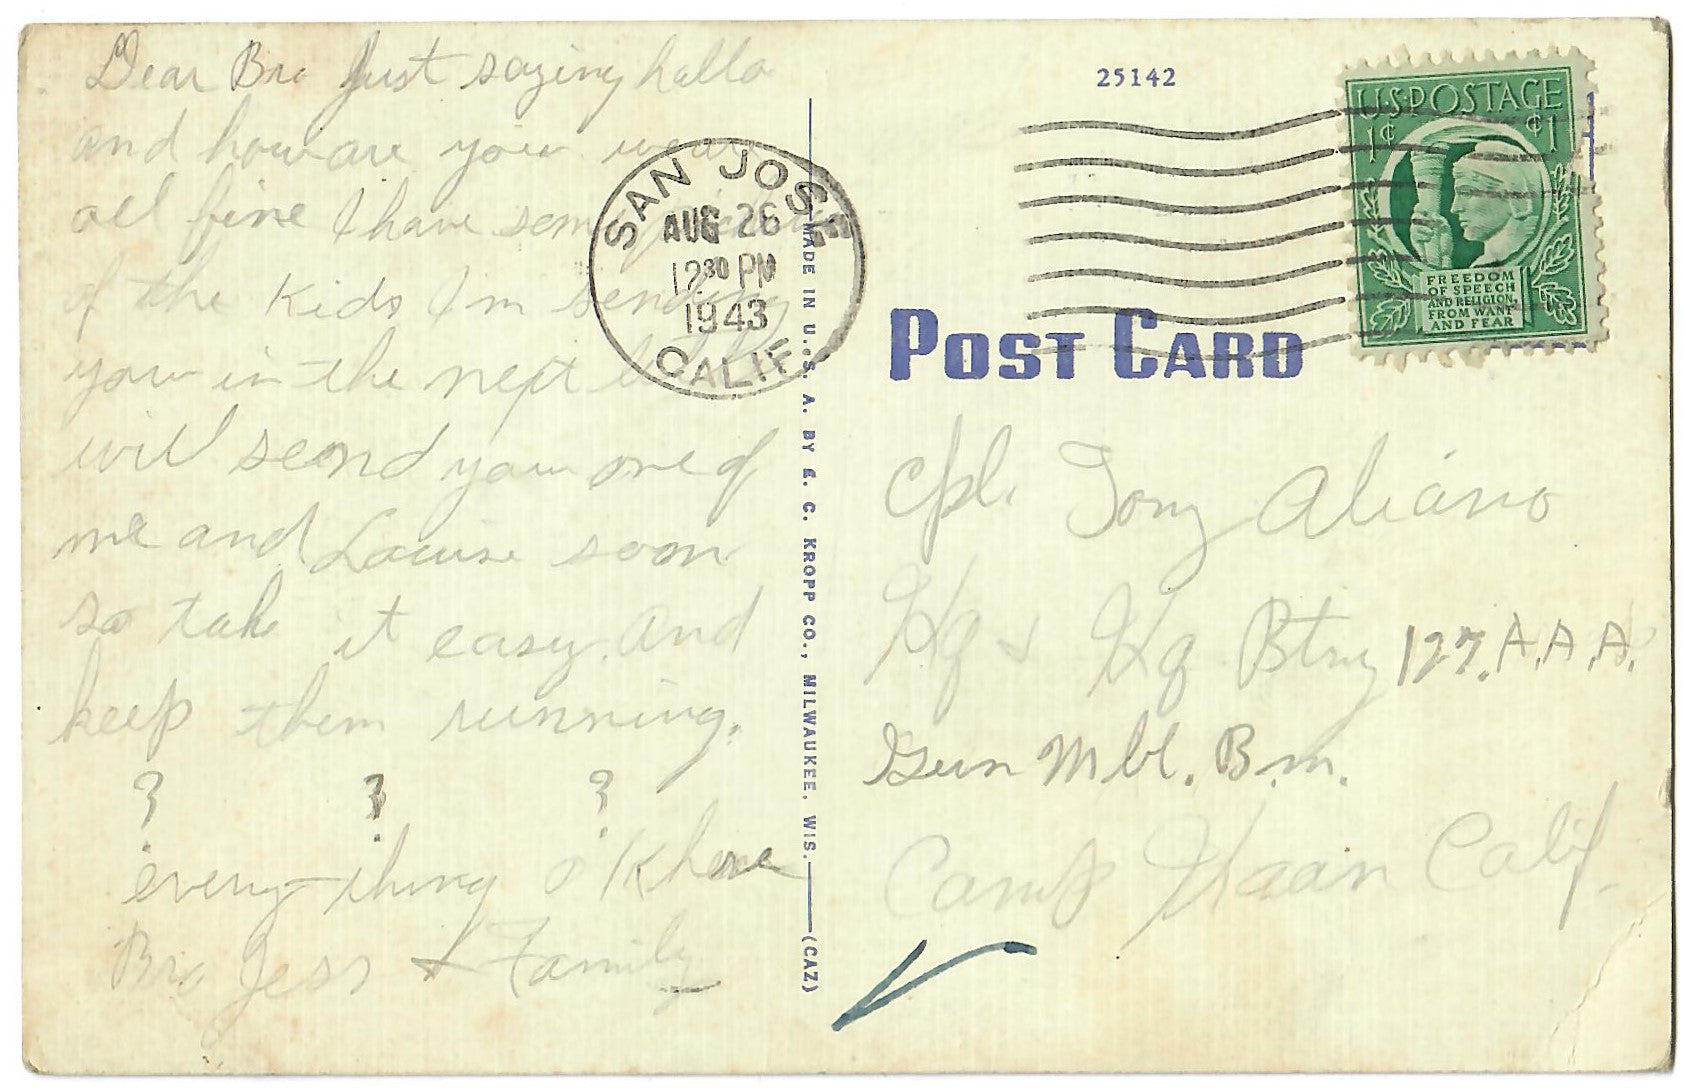 Dear Bro Just saying hello
and how are you wear
all fine I have some
of the Kids I'm sending
you in the next
will seond you one of
me and Louise soon
so take it easy. and
keep them running.
? ? ?
every-thing o'K here
Bro Jess & Family
SAN JOSE
AUG 26
12 30 PM
1943
CALIF.
MADE IN U. S. A. BY E. C. KROPP CO., MILWAUKEE, WIS. (CAZ)
25142
U·S·POSTAGE
1¢ ¢1
FREEDOM
OF SPEECH
AND RELIGION,
FROM WANT
AND FEAR
POST CARD
Cpl. Tony Aliano
Hq & Hq Btry 127. A.A.A.
Gun Mbl. B.n.
Camp Haan Calif.